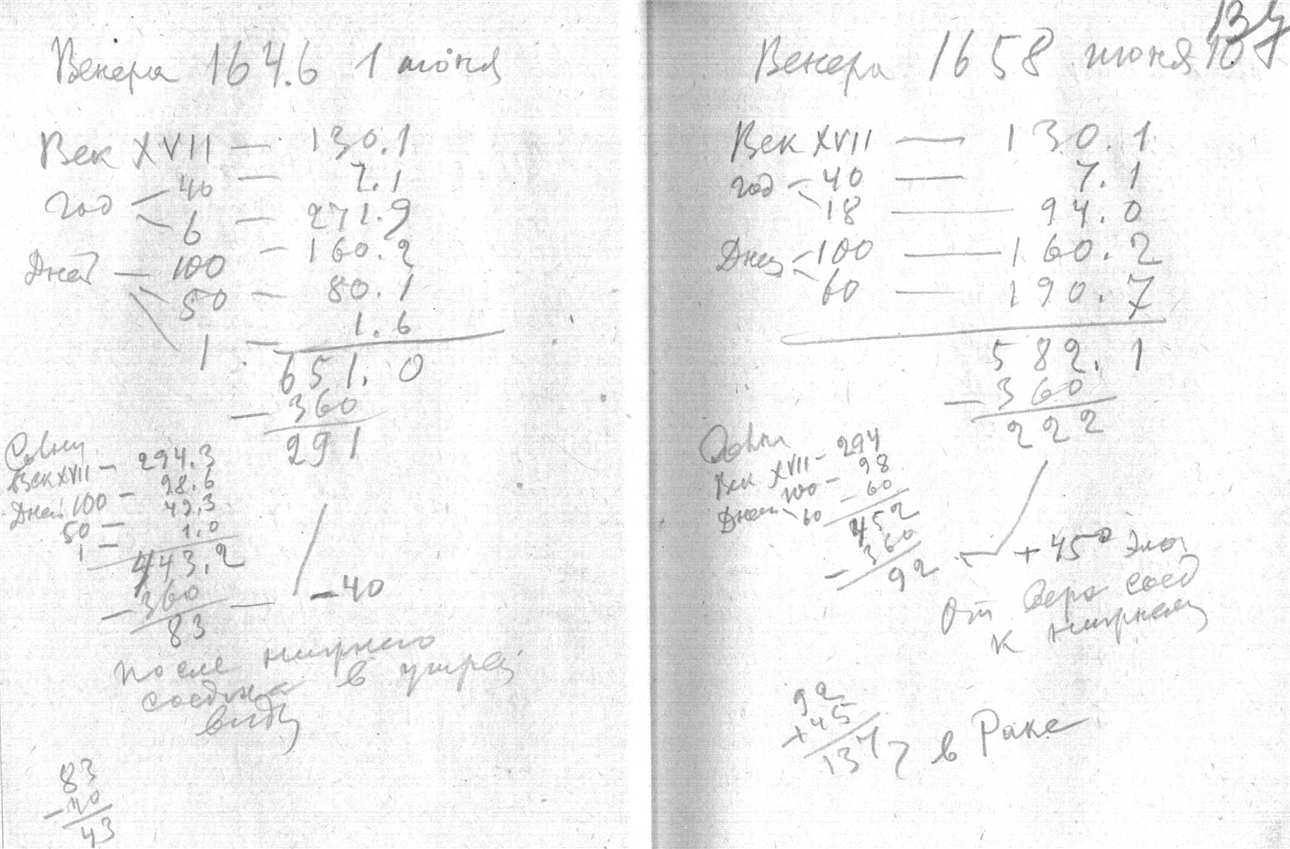 Венера 1646 1 июня
Век XVII — 130.1
год — 40 — 7.1
6 — 271.9
Дней — 100 — 160.2
50 — 80.1
1 — 1.6
651.0
— 360
291
Солнц
Век XVII — 294.3
Дней 100 — 98.6
50 — 49.3
1 — 1.0
443.2
— 360 — — 40
83
после нижнего
соединен в утрен
види
83
— 40
43
134
Венера 1658 июня 10
Век XVII — 130.1
год — 40 — 7.1
18 — 94.0
Дней — 100 — 160.2
60 — 190.7
582.1
— 360
222
Век XVII — 294
100 — 98
Дней 60 — 60
452
— 360
92 + 45°
От соед
к нижнем
92
+ 45
137 в Раке